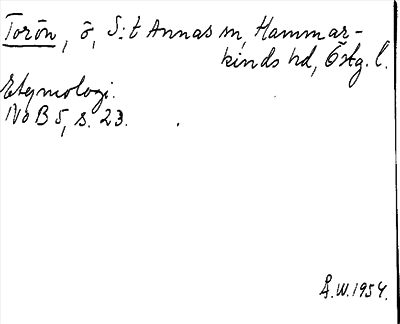 Torön, ö, S:t Annas sn, Hammar-
kinds hd, Östg. l.
Etymologi.
NoB 5, s. 23.
Å.W. 1954.